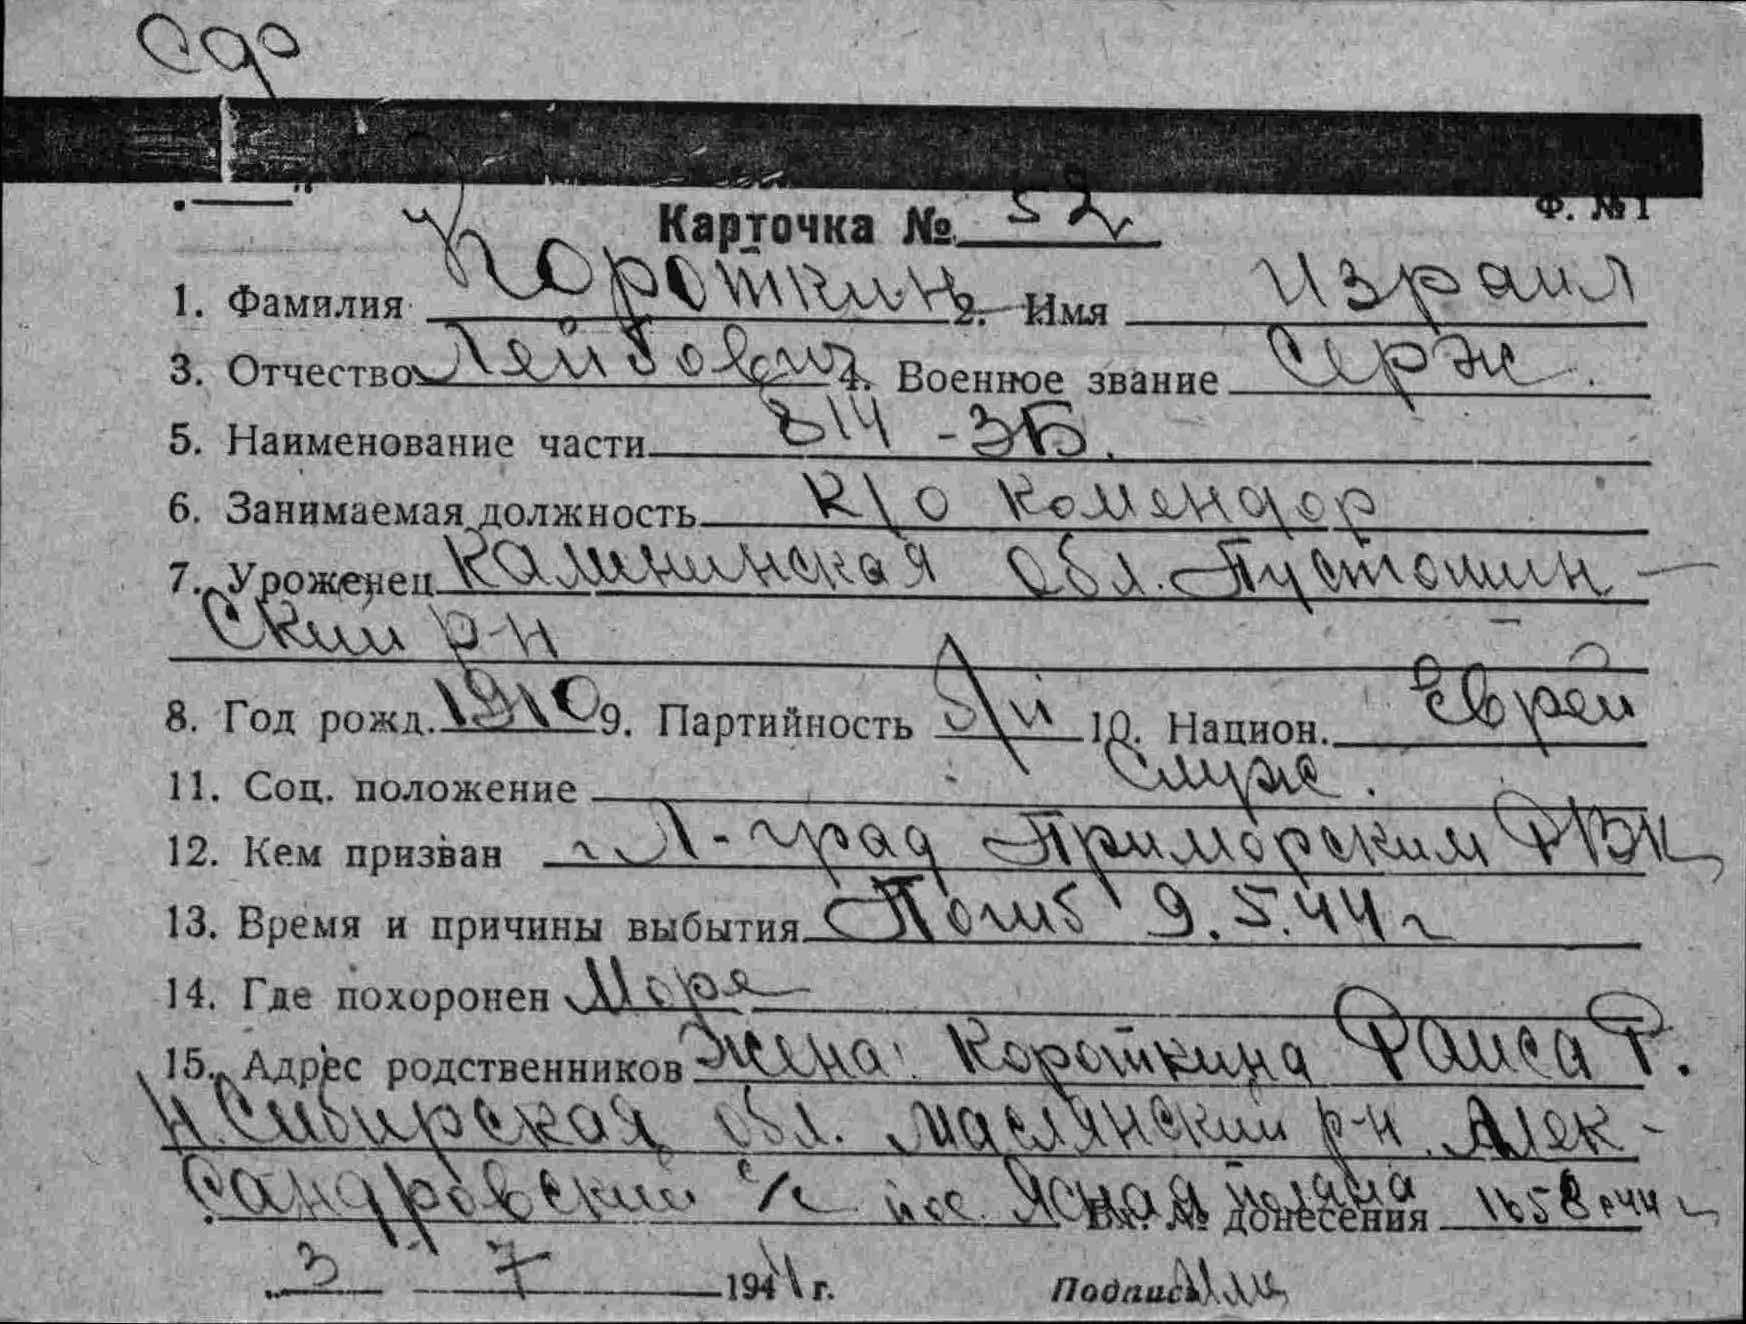 Сдо
Карточка № 52 Ф. №1
1. Фамилия Короткин 2. Имя Израил
3. Отчество Лейбович 4. Военное звание Серж.
5. Наименование части 814 - ЗБ.
6. Занимаемая должность К/О Комендор
7. Уроженец Калининская обл. Пустошин-
ский р-н
8. Год рожд. 1910 9. Партийность б/п 10. Национ. Еврей
11. Соц. положение Служ.
12. Кем призван Л-град Приморским РВК
13. Время и причины выбытия Погиб 9.5.44 г
14. Где похоронен Море
15. Адрес родственников Жена: Короткина Раиса Р.
Н. Сибирская обл. Маслянский р-н. Алек-
сандровский с/с пос. Ясная поляна
Вх. № донесения 1658.44 г
3 7 1944 г. Подпись